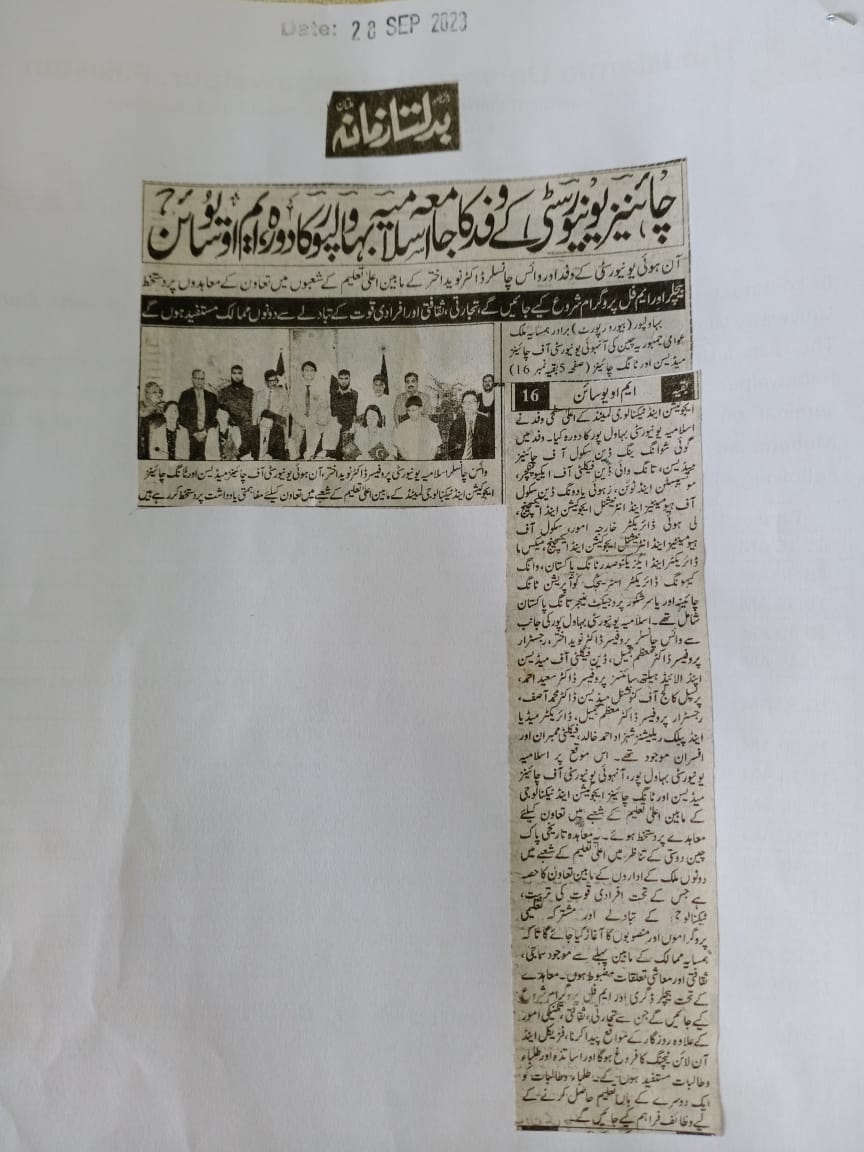 Date: 28 SEP 2023
بدلتا زمانہ
ملتان
چائنیز یونیورسٹی کے وفد کا جامعہ اسلامیہ بہاولپور کا دورہ، ایم او یو سائن
آن ہوئی یونیورسٹی کے وفد اور وائس چانسلر ڈاکٹر نوید اختر کے مابین اعلیٰ تعلیم کے شعبوں میں تعاون کے معاہدوں پر دستخط
بیچلر اور ایم فل پروگرام شروع کیے جائیں گے، تجارتی، ثقافتی اور افرادی قوت کے تبادلے سے دونوں ممالک مستفید ہوں گے
بہاولپور (بیورو رپورٹ) برادر ہمسایہ ملک
عوامی جمہوریہ چین کی آنہوئی یونیورسٹی آف چائنیز
میڈیسن اور ٹانگ چائنیز (صفحہ 5 بقیہ نمبر 16)
وائس چانسلر اسلامیہ یونیورسٹی پروفیسر ڈاکٹر نوید اختر، آن ہوئی یونیورسٹی آف چائنیز میڈیسن اور ٹانگ چائنیز
ایجوکیشن اینڈ ٹیکنالوجی لمیٹڈ کے مابین اعلیٰ تعلیم کے شعبے میں تعاون کیلئے مفاہمتی یادداشت پر دستخط کر رہے ہیں
بقیہ ایم او یو سائن 16
ایجوکیشن اینڈ ٹیکنالوجی لمیٹڈ کے اعلیٰ سطحی وفد نے
اسلامیہ یونیورسٹی بہاول پور کا دورہ کیا۔ وفد میں
گوئی شوانگ ینگ ڈین سکول آف چائنیز
میڈیسن، تانگ وائی ڈین فیکلٹی آف ایکیوپنکچر،
موکسیبسشن اینڈ ٹوئن، زہوئی یادونگ ڈین سکول
آف ہیومینٹیز اینڈ انٹرنیشنل ایجوکیشن اینڈ ایکسچینج،
لی ہوئی ڈائریکٹر خارجہ امور، سکول آف
ہیومینٹیز اینڈ انٹرنیشنل ایجوکیشن اینڈ ایکسچینج، میکس ما
ڈائریکٹر اینڈ ایگزیکٹو صدر ٹانگ پاکستان، وانگ
کیہونگ ڈائریکٹر اسٹریٹجک کوآپریشن ٹانگ
چائنیہ اور یاسر شکور پروجیکٹ منیجر تانگ پاکستان
شامل تھے۔ اسلامیہ یونیورسٹی بہاول پور کی جانب
سے وائس چانسلر پروفیسر ڈاکٹر نوید اختر، رجسٹرار
پروفیسر ڈاکٹر معظم جمیل، ڈین فیکلٹی آف میڈیسن
اینڈ الائیڈ ہیلتھ سائنسز پروفیسر ڈاکٹر سعید احمد،
پرنسپل کالج آف کنونشنل میڈیسن ڈاکٹر محمد آصف،
رجسٹرار پروفیسر ڈاکٹر معظم جمیل، ڈائریکٹر میڈیا
اینڈ پبلک ریلیشنز شہزاد احمد خالد، فیکلٹی ممبران اور
افسران موجود تھے۔ اس موقع پر اسلامیہ
یونیورسٹی بہاول پور، آنہوئی یونیورسٹی آف چائنیز
میڈیسن اور ٹانگ چائنیز ایجوکیشن اینڈ ٹیکنالوجی
کے مابین اعلیٰ تعلیم کے شعبے میں تعاون کیلئے
معاہدے پر دستخط ہوئے۔ یہ معاہدہ تاریخی پاک
چین دوستی کے تناظر میں اعلیٰ تعلیم کے شعبے میں
دونوں ملک کے اداروں کے مابین تعاون کا حصہ
ہے جس کے تحت افرادی قوت کی تربیت،
ٹیکنالوجی کے تبادلے اور مشترکہ تعلیمی
پروگراموں اور منصوبوں کا آغاز کیا جائے گا تاکہ
ہمسایہ ممالک کے مابین پہلے سے موجود سماجی،
ثقافتی اور معاشی تعلقات مضبوط ہوں۔ معاہدے
کے تحت بیچلر ڈگری اور ایم فل پروگرام شروع
کیے جائیں گے جن سے تجارتی، ثقافتی، تکنیکی امور
کے علاوہ روزگار کے مواقع پیدا کرنا، فزیکل اینڈ
آن لائن ٹیچنگ کا فروغ ہوگا اور اساتذہ اور طلباء
و طالبات مستفید ہوں گے۔ طلباء و طالبات کو
ایک دوسرے کے ہاں تعلیم حاصل کرنے کے
لیے وظائف فراہم کیے جائیں گے۔